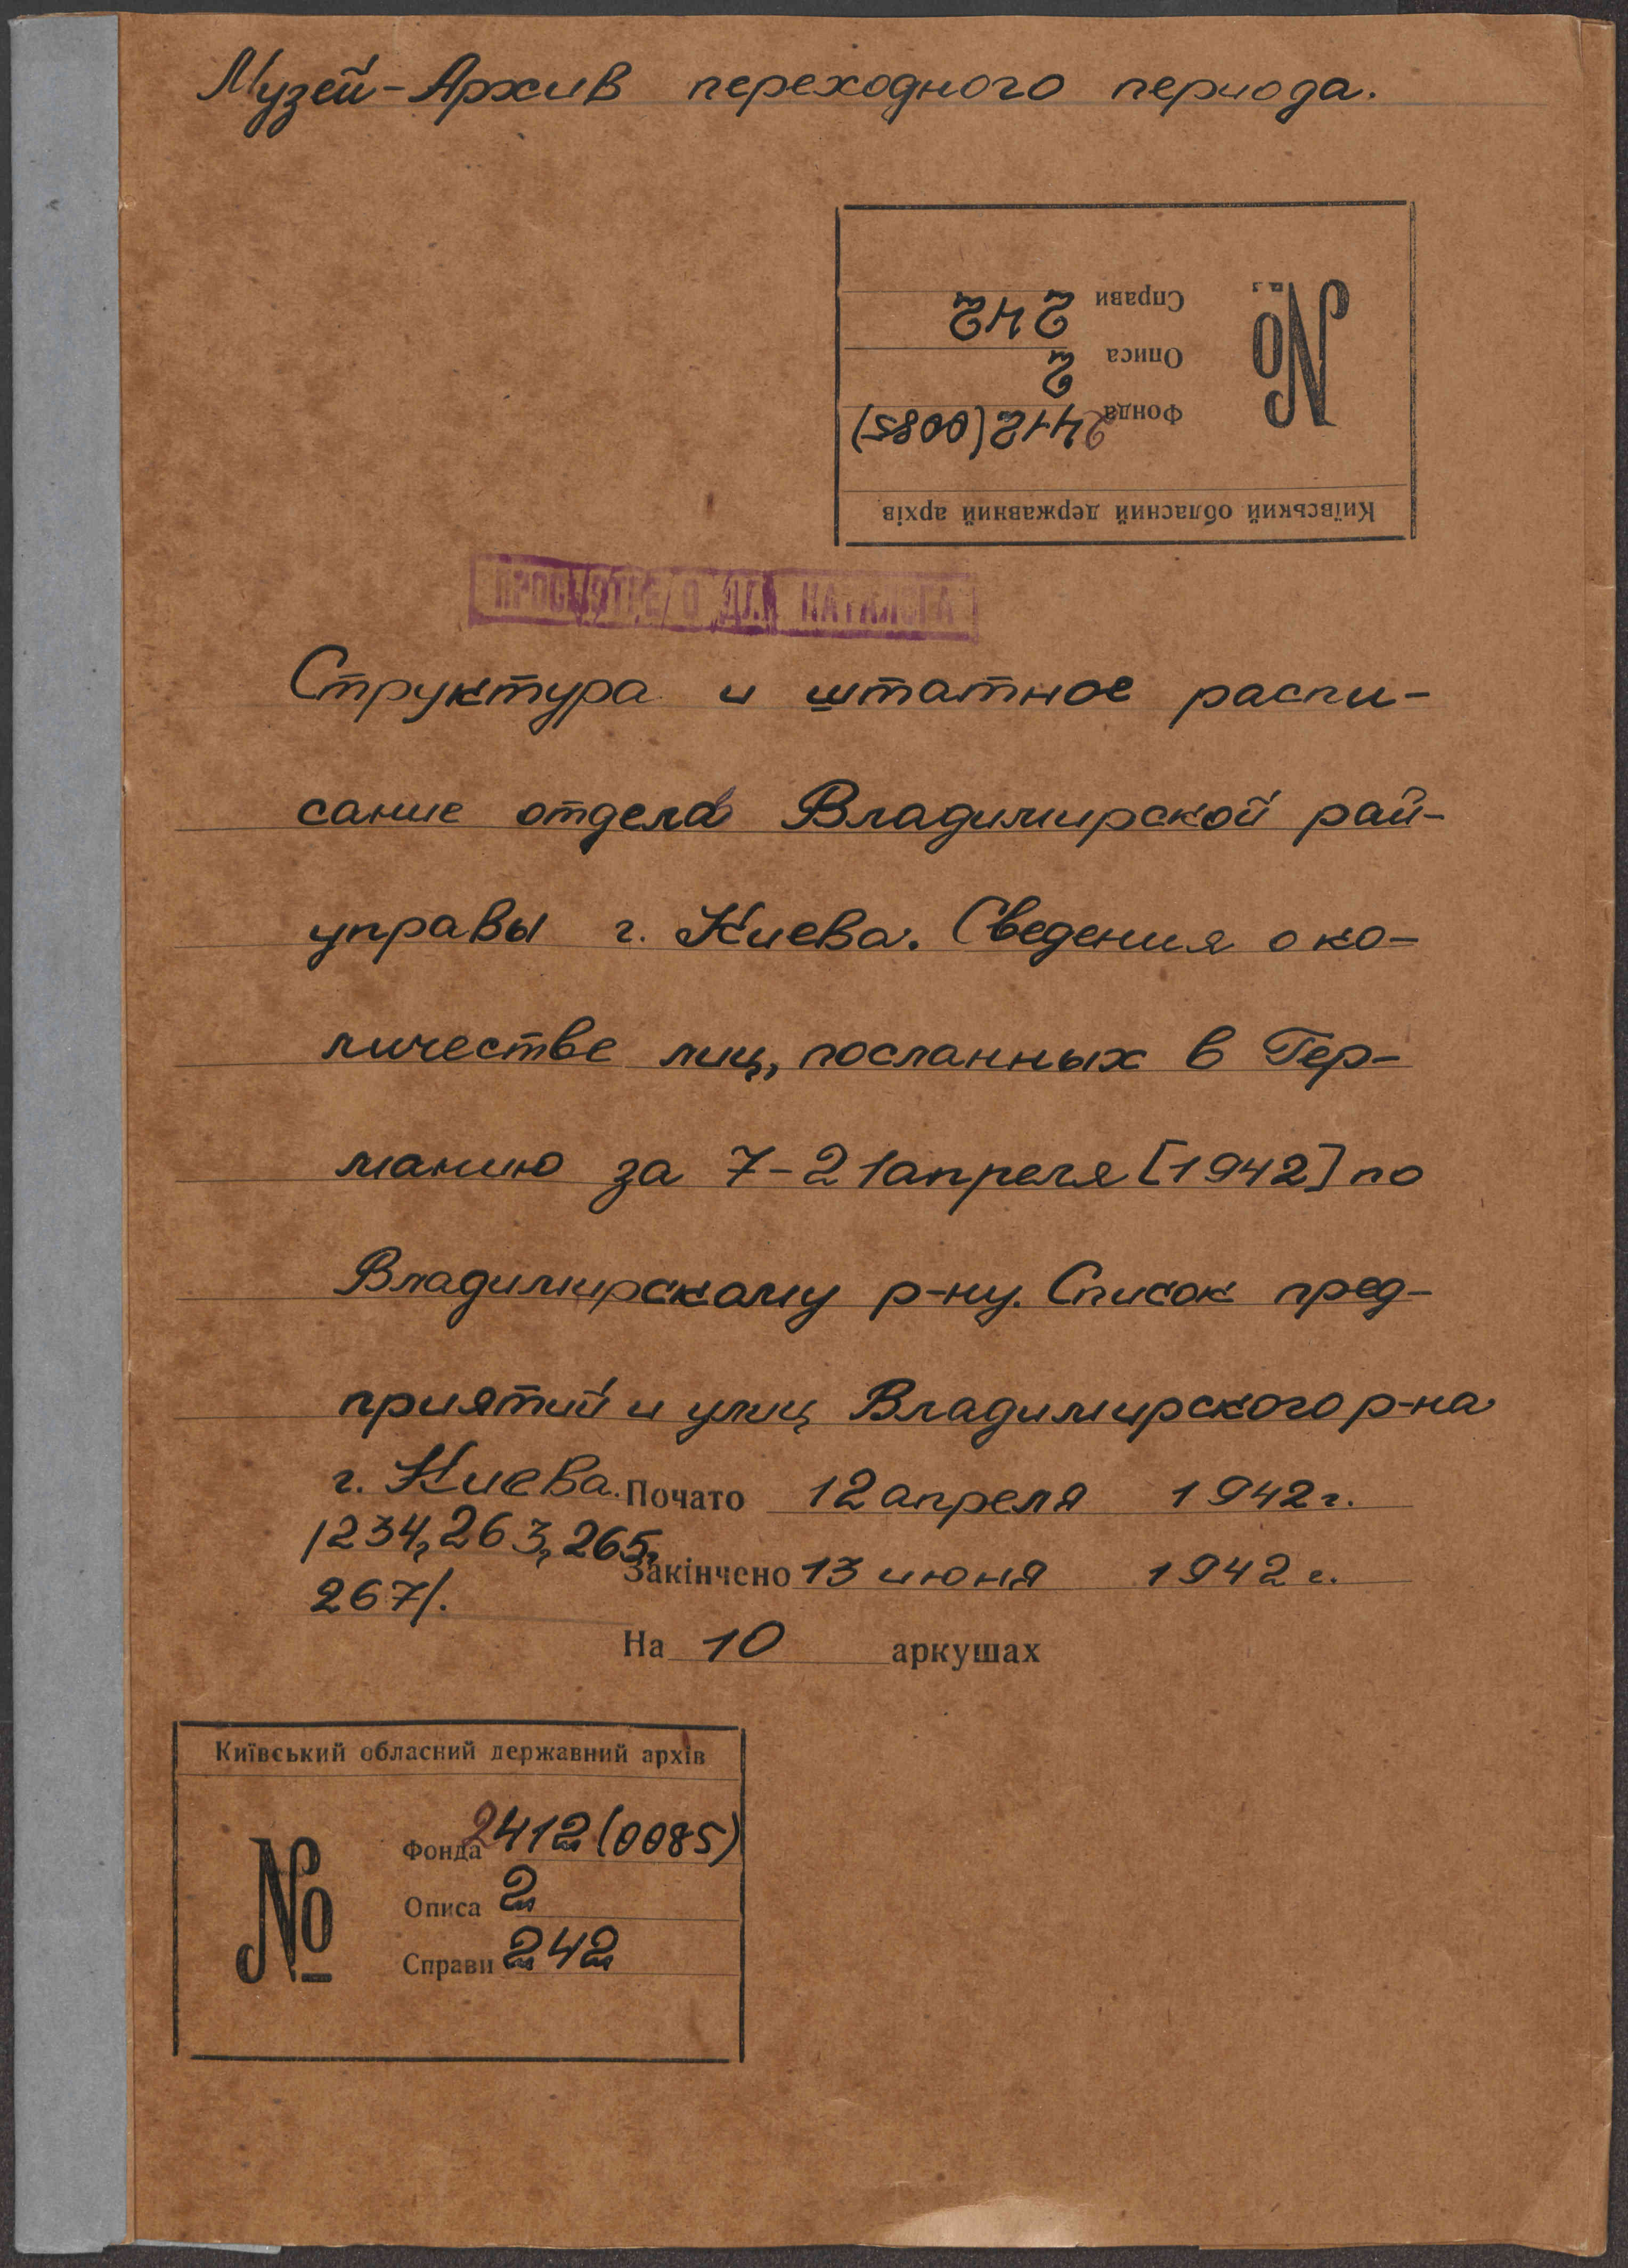 Музей-Архив переходного периода.
Київський обласний державний архів
№
Фонда 2412 (0085)
Описа 2
Справи 242
ПРОСМОТРЕНО ДЛЯ КАТАЛОГА
Структура и штатное распи-
сание отдела Владимирской рай-
управы г. Киева. Сведения о ко-
личестве лиц, посланных в Гер-
манию за 7-21 апреля [1942] по
Владимирскому р-ну. Список пред-
приятий и улиц Владимирского р-на
г. Киева. Почато 12 апреля 1942 г.
/234, 263, 265,
Закінчено 13 июня 1942 г.
267/.
На 10 аркушах
Київський обласний державний архів
№
Фонда 2412 (0085)
Описа 2
Справи 242